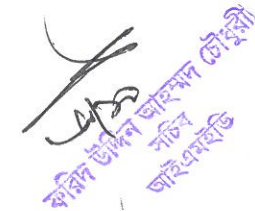 ফরিদ উদ্দিন আহম্মদ চৌধুরী
সচিব
আইএমইডি